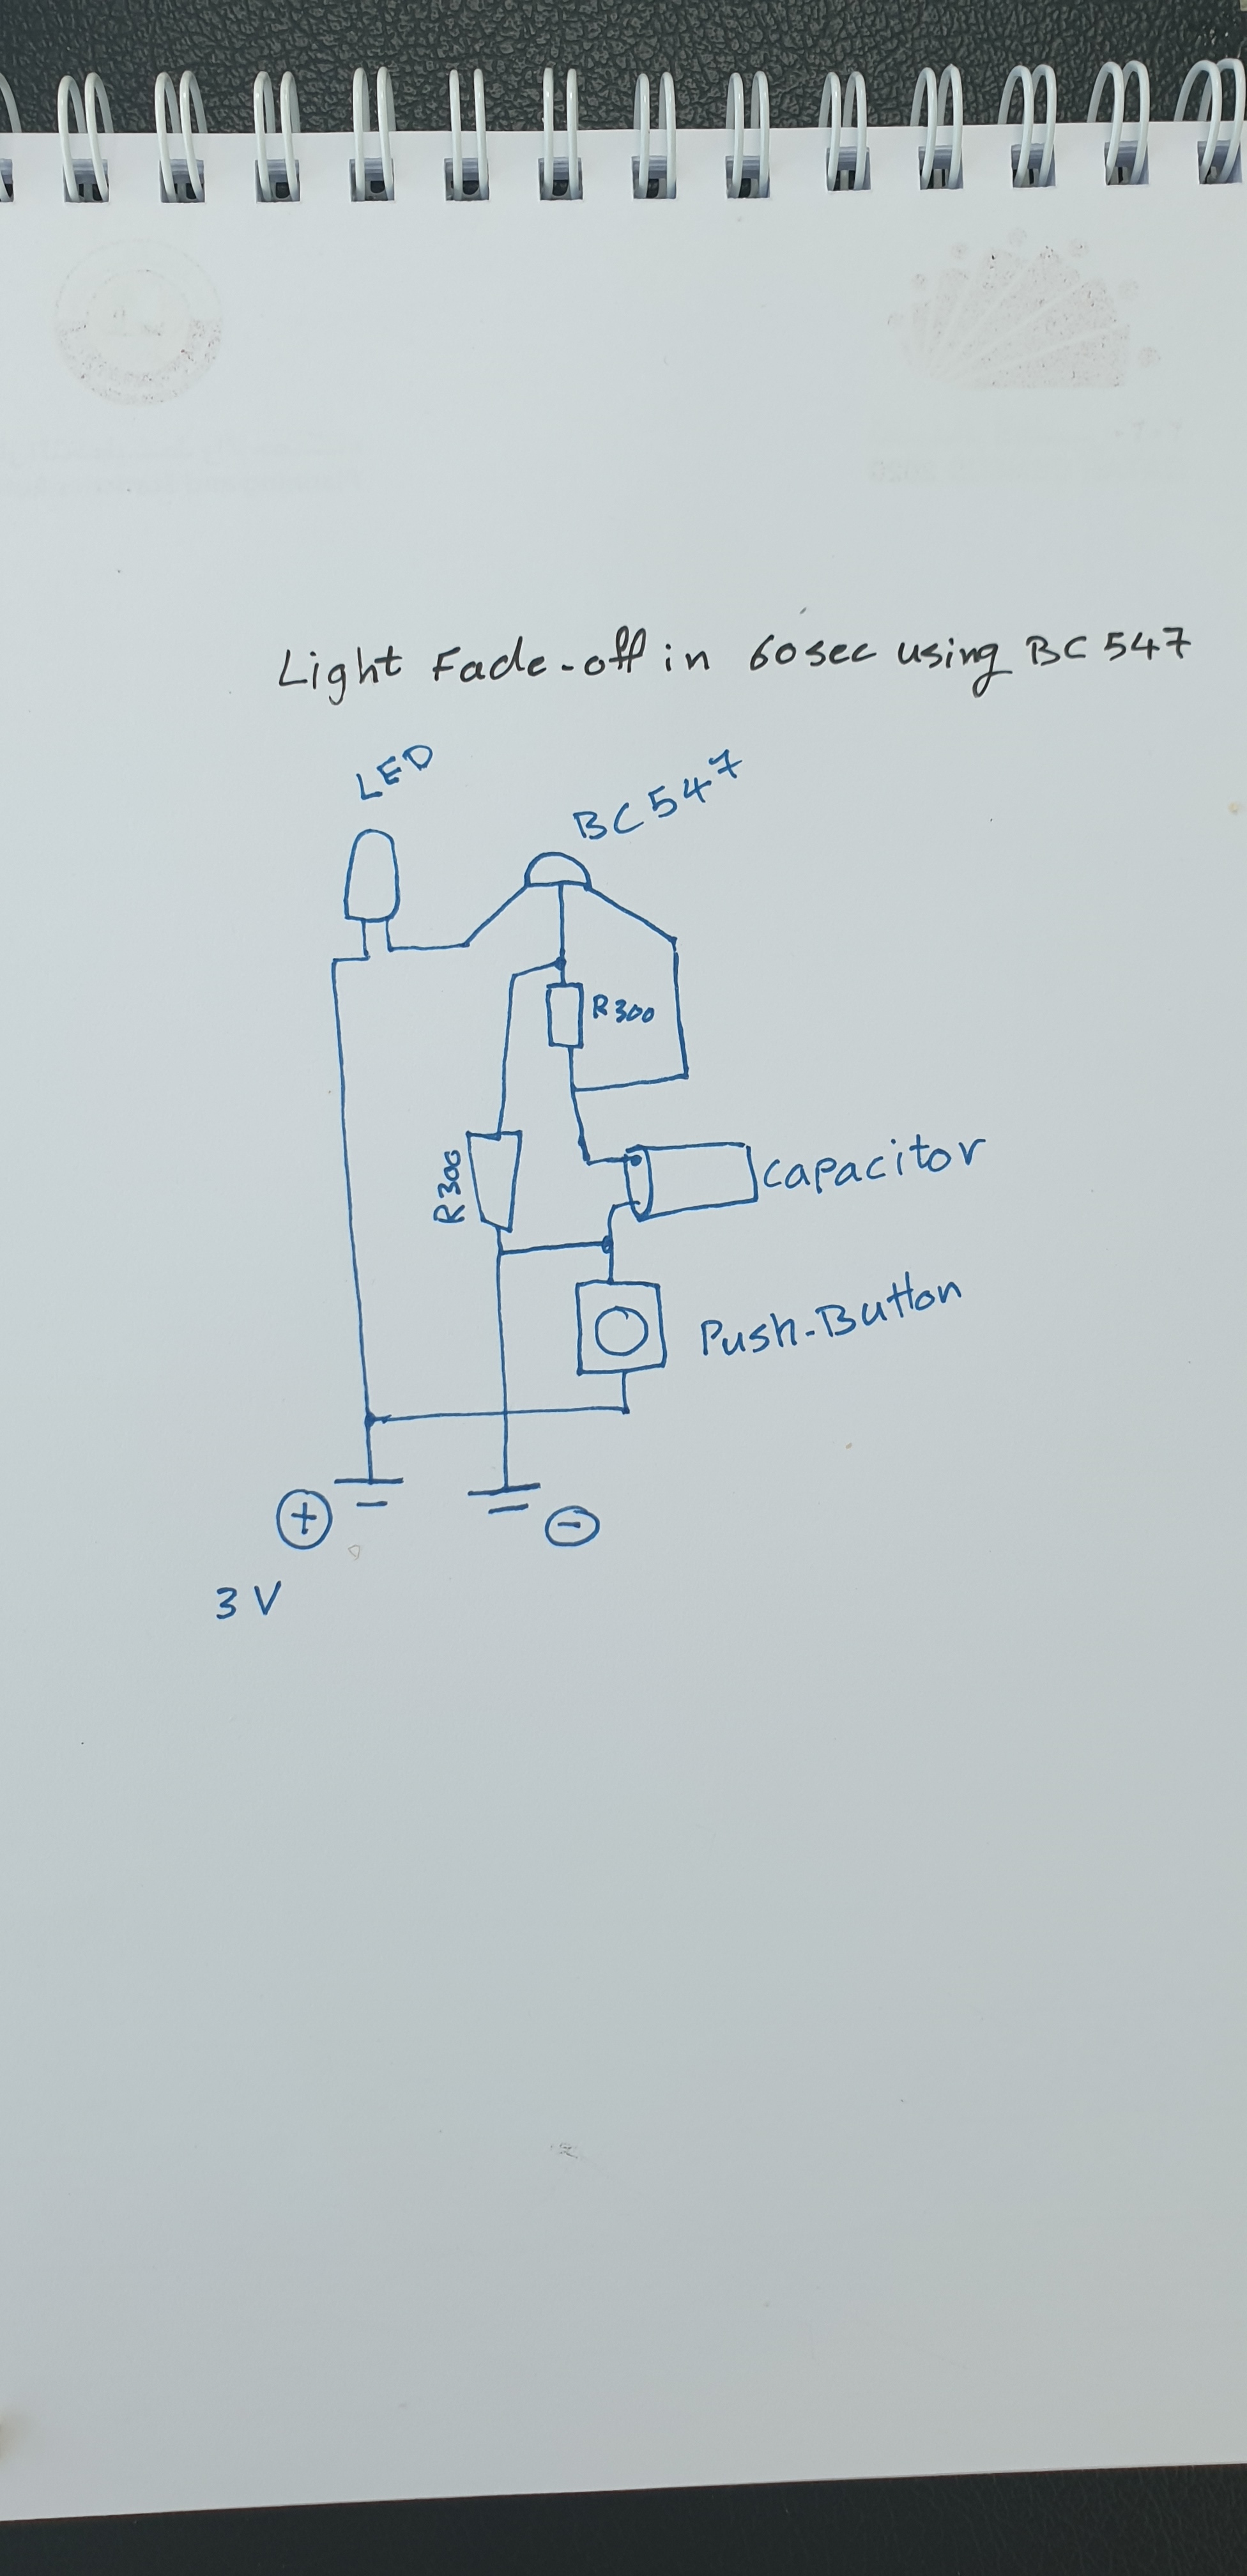 Light Fade-off in 60 sec using BC 547
LED
BC 547
R300
R300
Capacitor
Push-Button
+
-
3 V